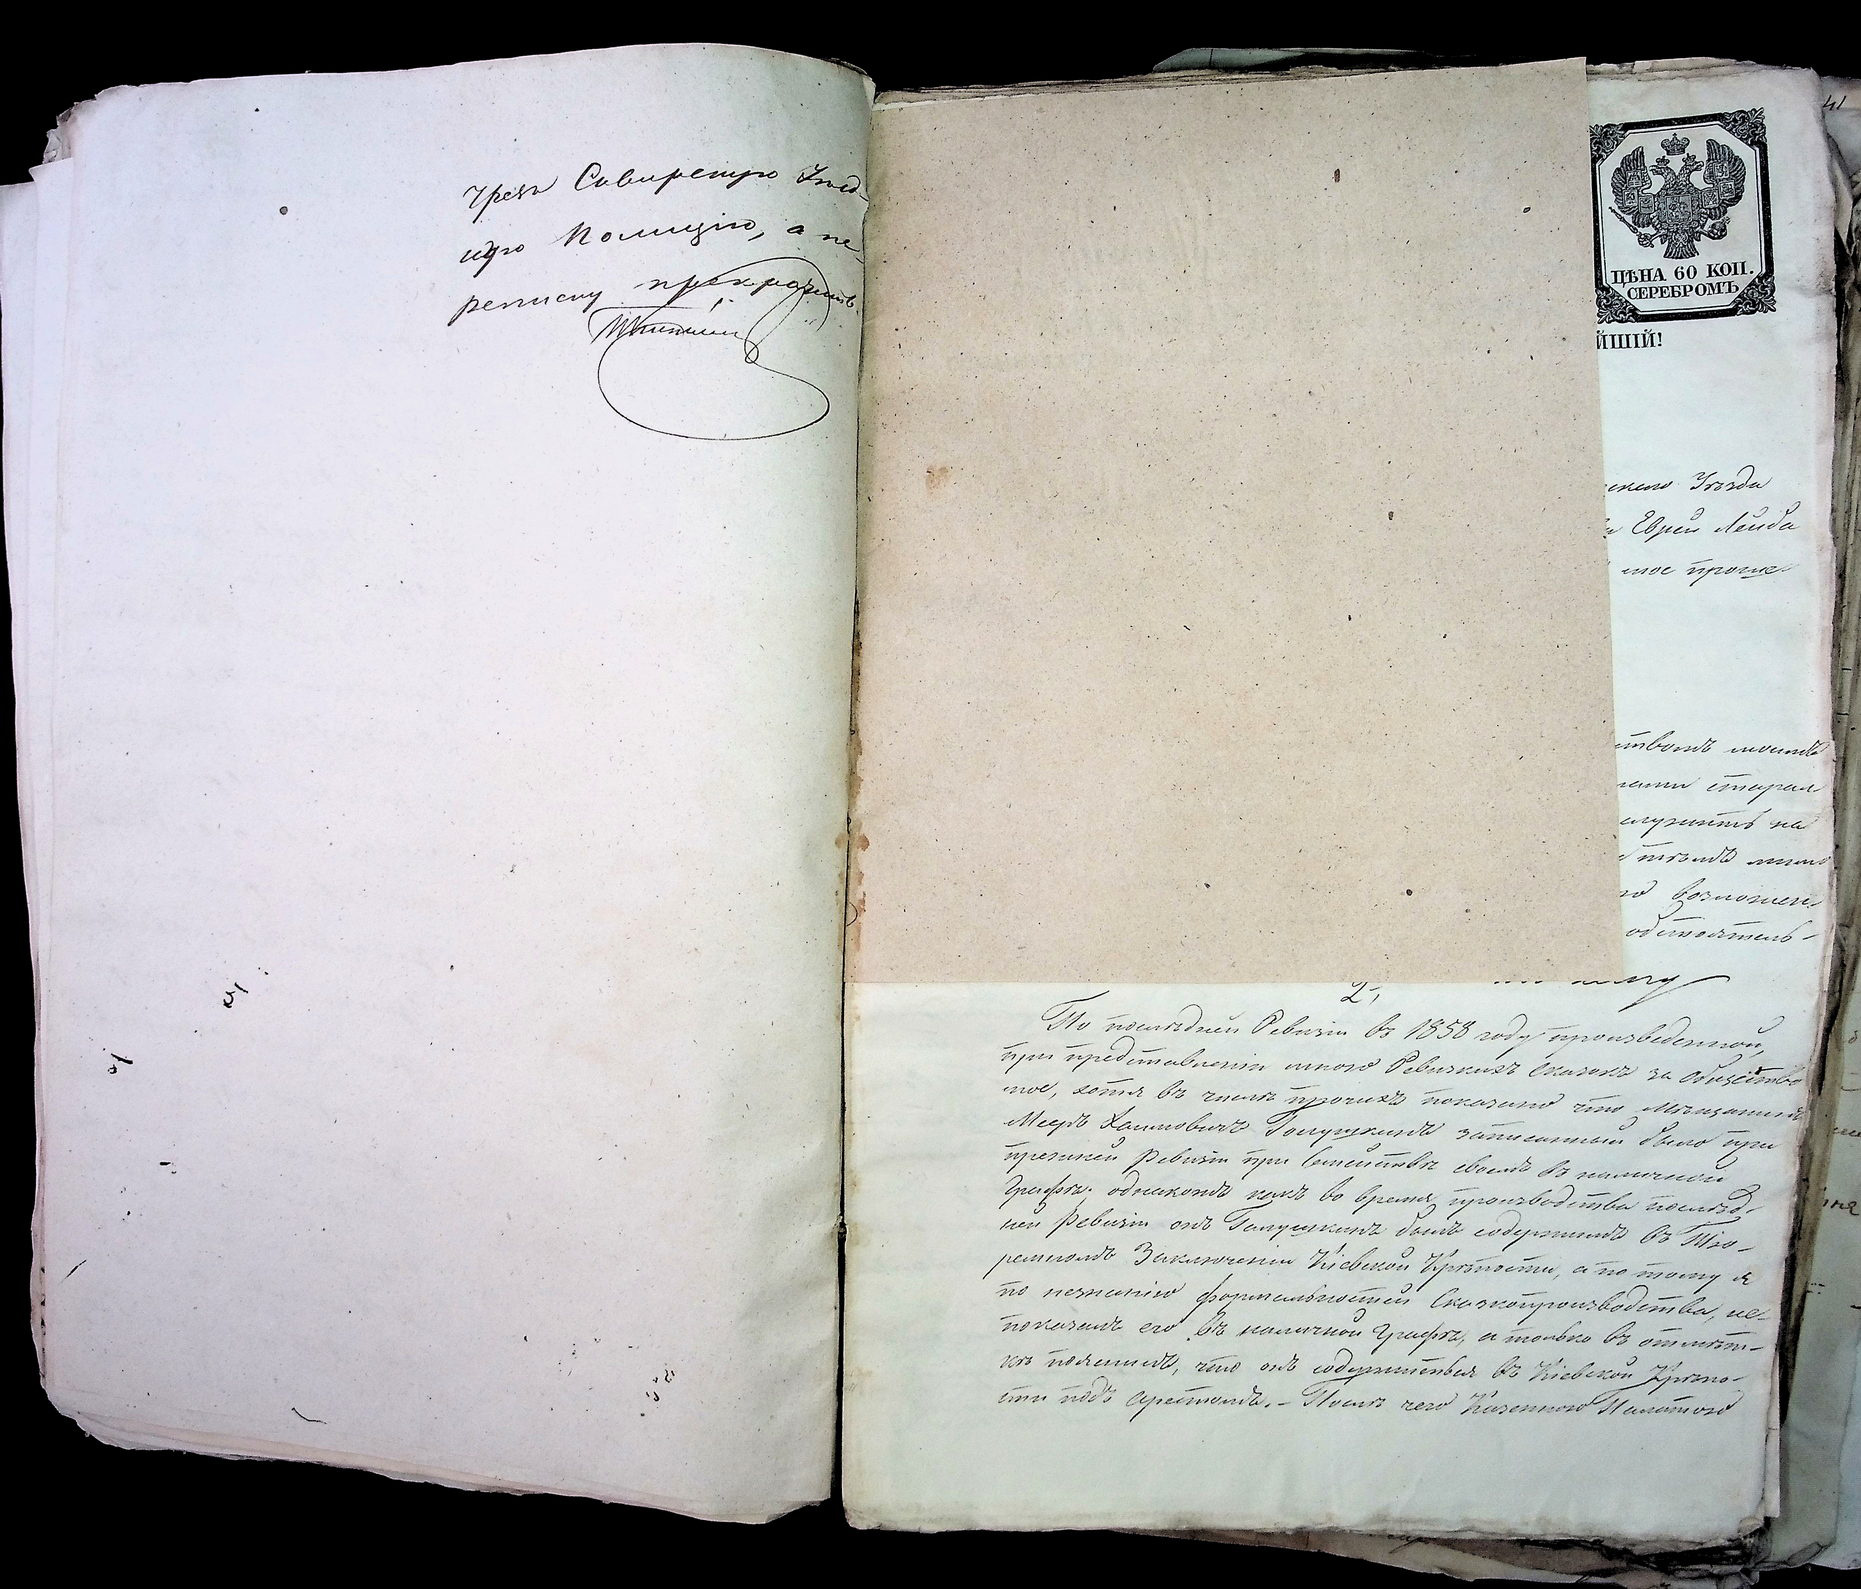 чрезъ Сквирскую Уезд-
ную Полицію, а пе-
реписку прекратить
41
ЦѢНА 60 КОП.
СЕРЕБРОМЪ
ЙШІЙ!
скаго Уѣзда
Еврей Лейба
мое проше-
ствомъ
старал
служить на
возможен
обстоятель-
2,
По послѣдней Ревизіи въ 1858 году произведенной,
при представленіи мною Ревизкихъ Сказокъ за Общество
мое, хотя въ числѣ прочихъ показано что мѣщанинъ
Мееръ Хаимовичъ Галушкинъ записанный было при
прежней Ревизіи при Семействѣ своемъ въ наличной
Графѣ; однакожъ какъ во время производства послѣд-
ней Ревизіи онъ Галушкинъ былъ содержимъ въ Тю-
ремномъ Заключеніи Кіевской Крѣпости, а по тому я
по незнанію формальностей Сказкопроизводства, не-
показалъ его въ наличной Графѣ, а только въ отмѣт-
кѣ пояснилъ, что онъ содержиться въ Кіевской Крѣпо-
сти подъ арестомъ. - Послѣ чего Казенною Палатою